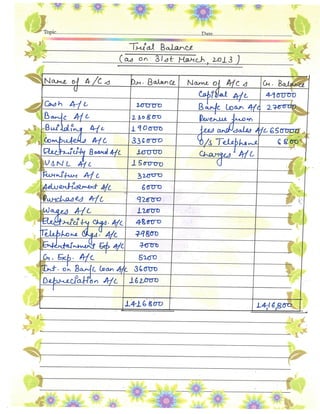 Topic Date
Trial Balance
(as on 31st March, 2013)
Name of A/Cs Dr. Balance Name of A/Cs Cr. Balance
Capital A/C 490000
Cash A/C 20000 Bank Loan A/C 270000
Bank A/C 230800 Revenue from
Building A/C 190000 fees and sales A/C 650000
Computers A/C 336000 O/S Telephone 6800
Electricity Board A/C 10000 Charges A/C
VSNL A/C 150000
Furniture A/C 32000
Advertisement A/C 6000
Purchases A/C 92000
Wages A/C 12000
Electricity Chgs. A/C 48000
Telephone Chgs. A/C 79800
Entertainment Exp A/C 7000
Gn. Exp. A/C 5200
Int. on Bank Loan A/C 36000
Depreciation A/C 162000
1416800 1416800